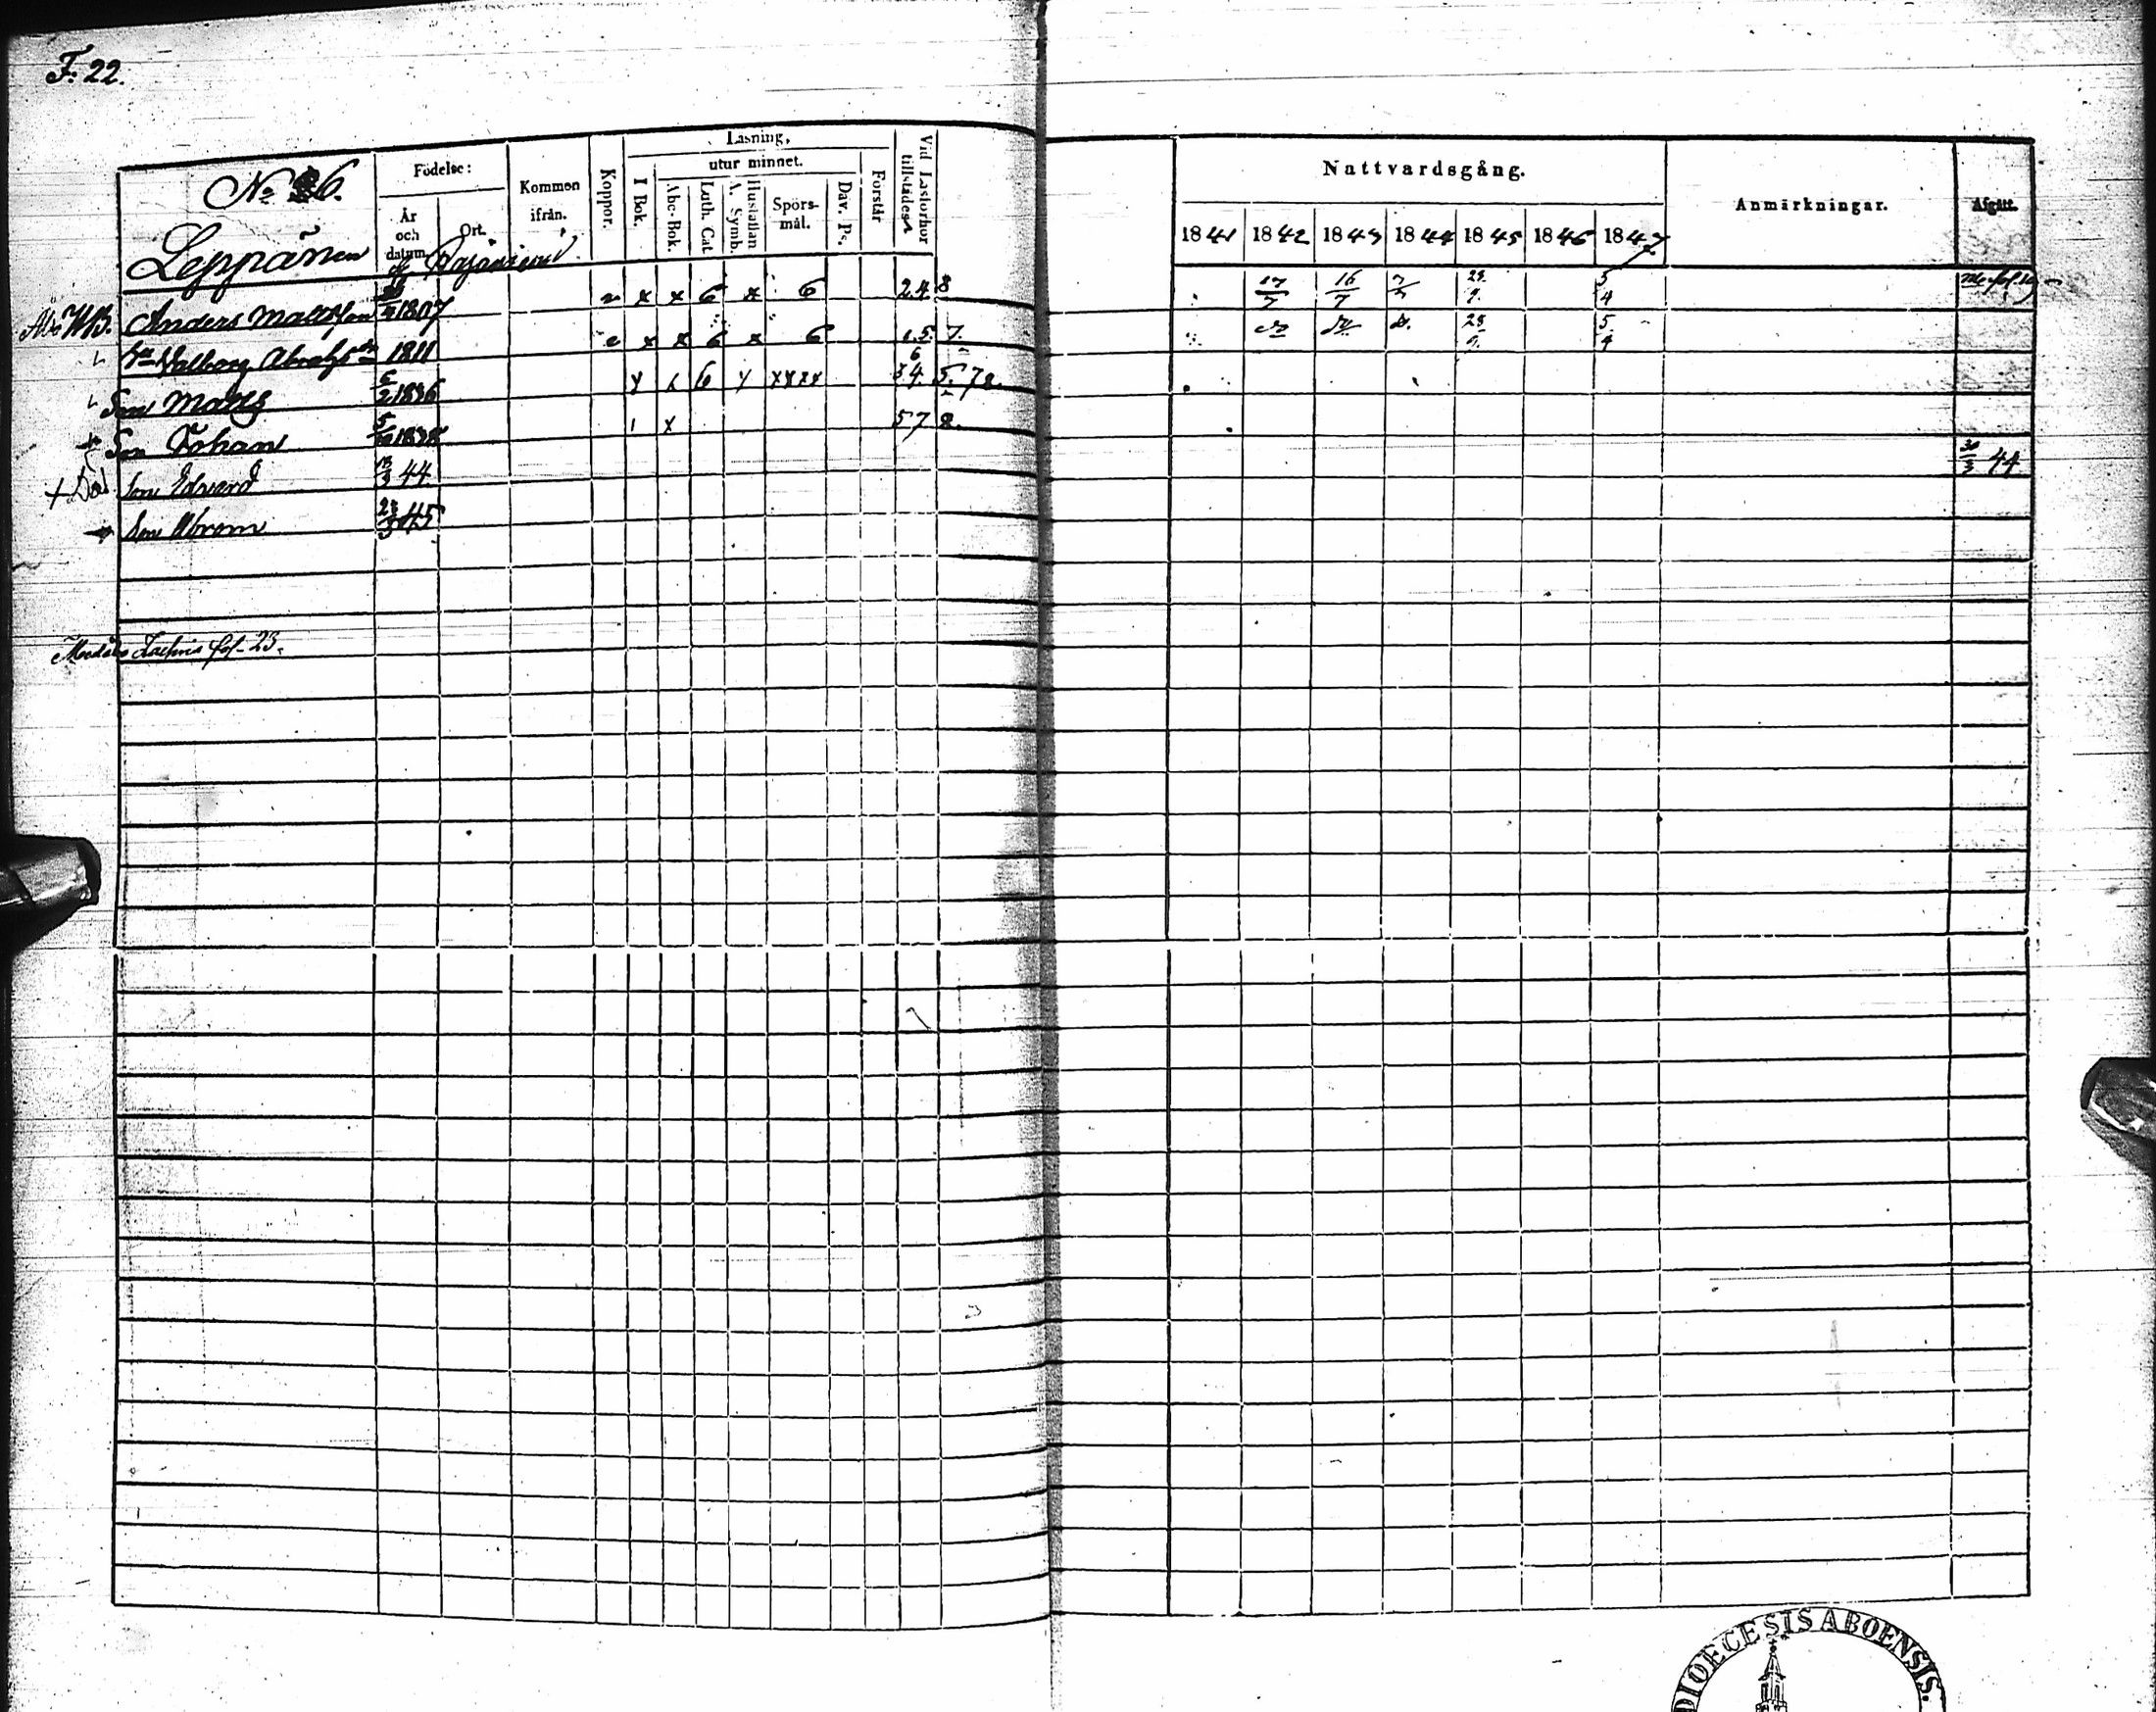 F. 22.
No 6.
Leppänen
Födelse:
År och datum
Ort.
Kommen ifrån.
Koppor.
Läsning,
I Bok.
utur minnet.
Abc-Bok.
Luth. Cat.
A. Symb.
Hustaflan
Spörsmål.
Dav. Ps.
Förstår
Vid Läsförhör tillstädes
Nattvardsgång.
1841 1842 1843 1844 1845 1846 1847
Anmärkningar.
Afgått.
Anders Mattsson 1807 x x 6 x 6 2.4 8 17/7 16/7 28/9 5/4
Hu Valborg Abrahsdr 1811 x x 6 x 6 5. 7. 28/9 5/4
Son Matts 6/2 1836 x x 6 x xxxx 34 5. 7 8.
Son Johan 5/10 1838 1 x 5 7 8.
+ Död Son Edvard 13/3 44 30/3 44
Son Abram 23/3 45
fol. 23.
DIOECESIS ABOENSIS.